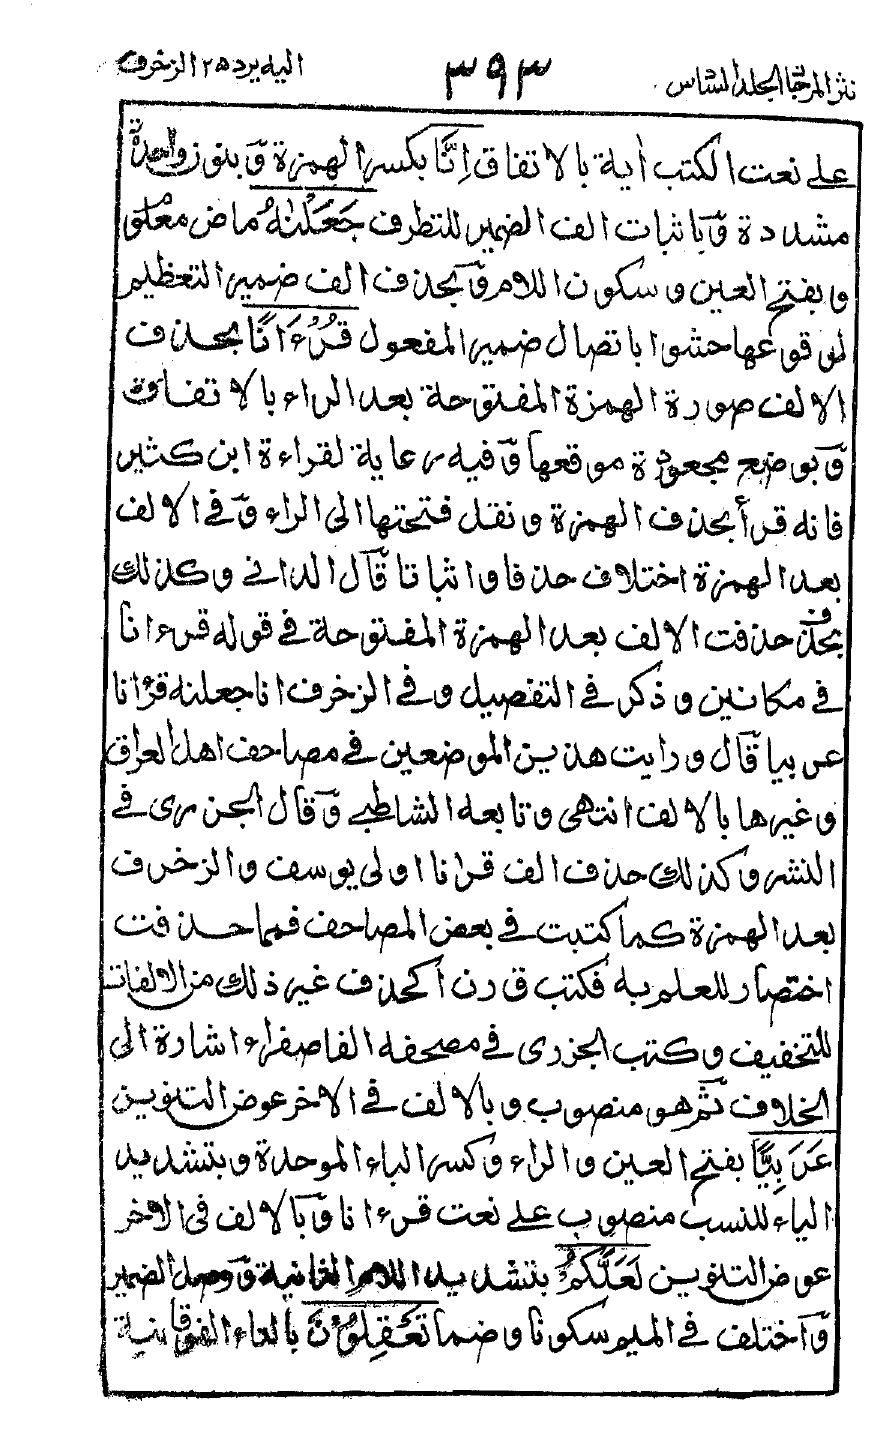 نثر المرجان المجلد السادس
٣٩٣
اليه يرد ٢٥ الزخرف
على نعت الكتب اية بالاتفاق اِنَّا بكسر الهمزة وَبنون واحدة
مشددة وَباثبات الف الضمير للتطرف جَعَلْنٰهُ ماض معلوم
وبفتح العين وسكون اللام وَبحذف الف ضمير التعظيم
لوقوعها حشوا باتصال ضمير المفعول قُرْءَانًا بحذف
الالف صورة الهمزة المفتوحة بعد الراء بالاتفاق
وَبوضع مجعودة موقعها وَفيه رعاية لقراءة ابن كثير
فانه قرأ بحذف الهمزة ونقل فتحتها الى الراء وَفى الالف
بعد الهمزة اختلاف حذفا واثباتا قَال الدانى وكذلك
بحذف حذفت الالف بعد الهمزة المفتوحة فى قوله قرءانا
فى مكانين وذكر فى التفصيل وفى الزخرف انا جعلنه قرءانا
عربيا قَال ورايت هذين الموضعين فى مصاحف اهل العراق
وغيرها بالالف انتهى وتابعه الشاطبى وَقال الجزرى فى
النشر وكذلك حذف الف قرانا اولى يوسف والزخرف
بعد الهمزة كما كتبت فى بعض المصاحف فمما حذفت
اختصار للعلم به فكتب قرن اكحذف غير ذلك من الالفات
للتخفيف وكتب الجزرى فى مصحفه الفا صفراء اشارة الى
الخلاف ثَم هو منصوب وبالالف فى الاخر عوض التنوين
عَرَبِيًّا بفتح العين والراء وكسر الباء الموحدة وبتشديد
الياء للنسب منصوب على نعت قرءانا وَبالالف فى الاخر
عوض التنوين لَعَلَّكُمْ بتشديد اللام الثانية وَوصل الضمير
وَاختلف فى الميم سكونا وضما تَعْقِلُوْنَ بالتاء الفوقانية